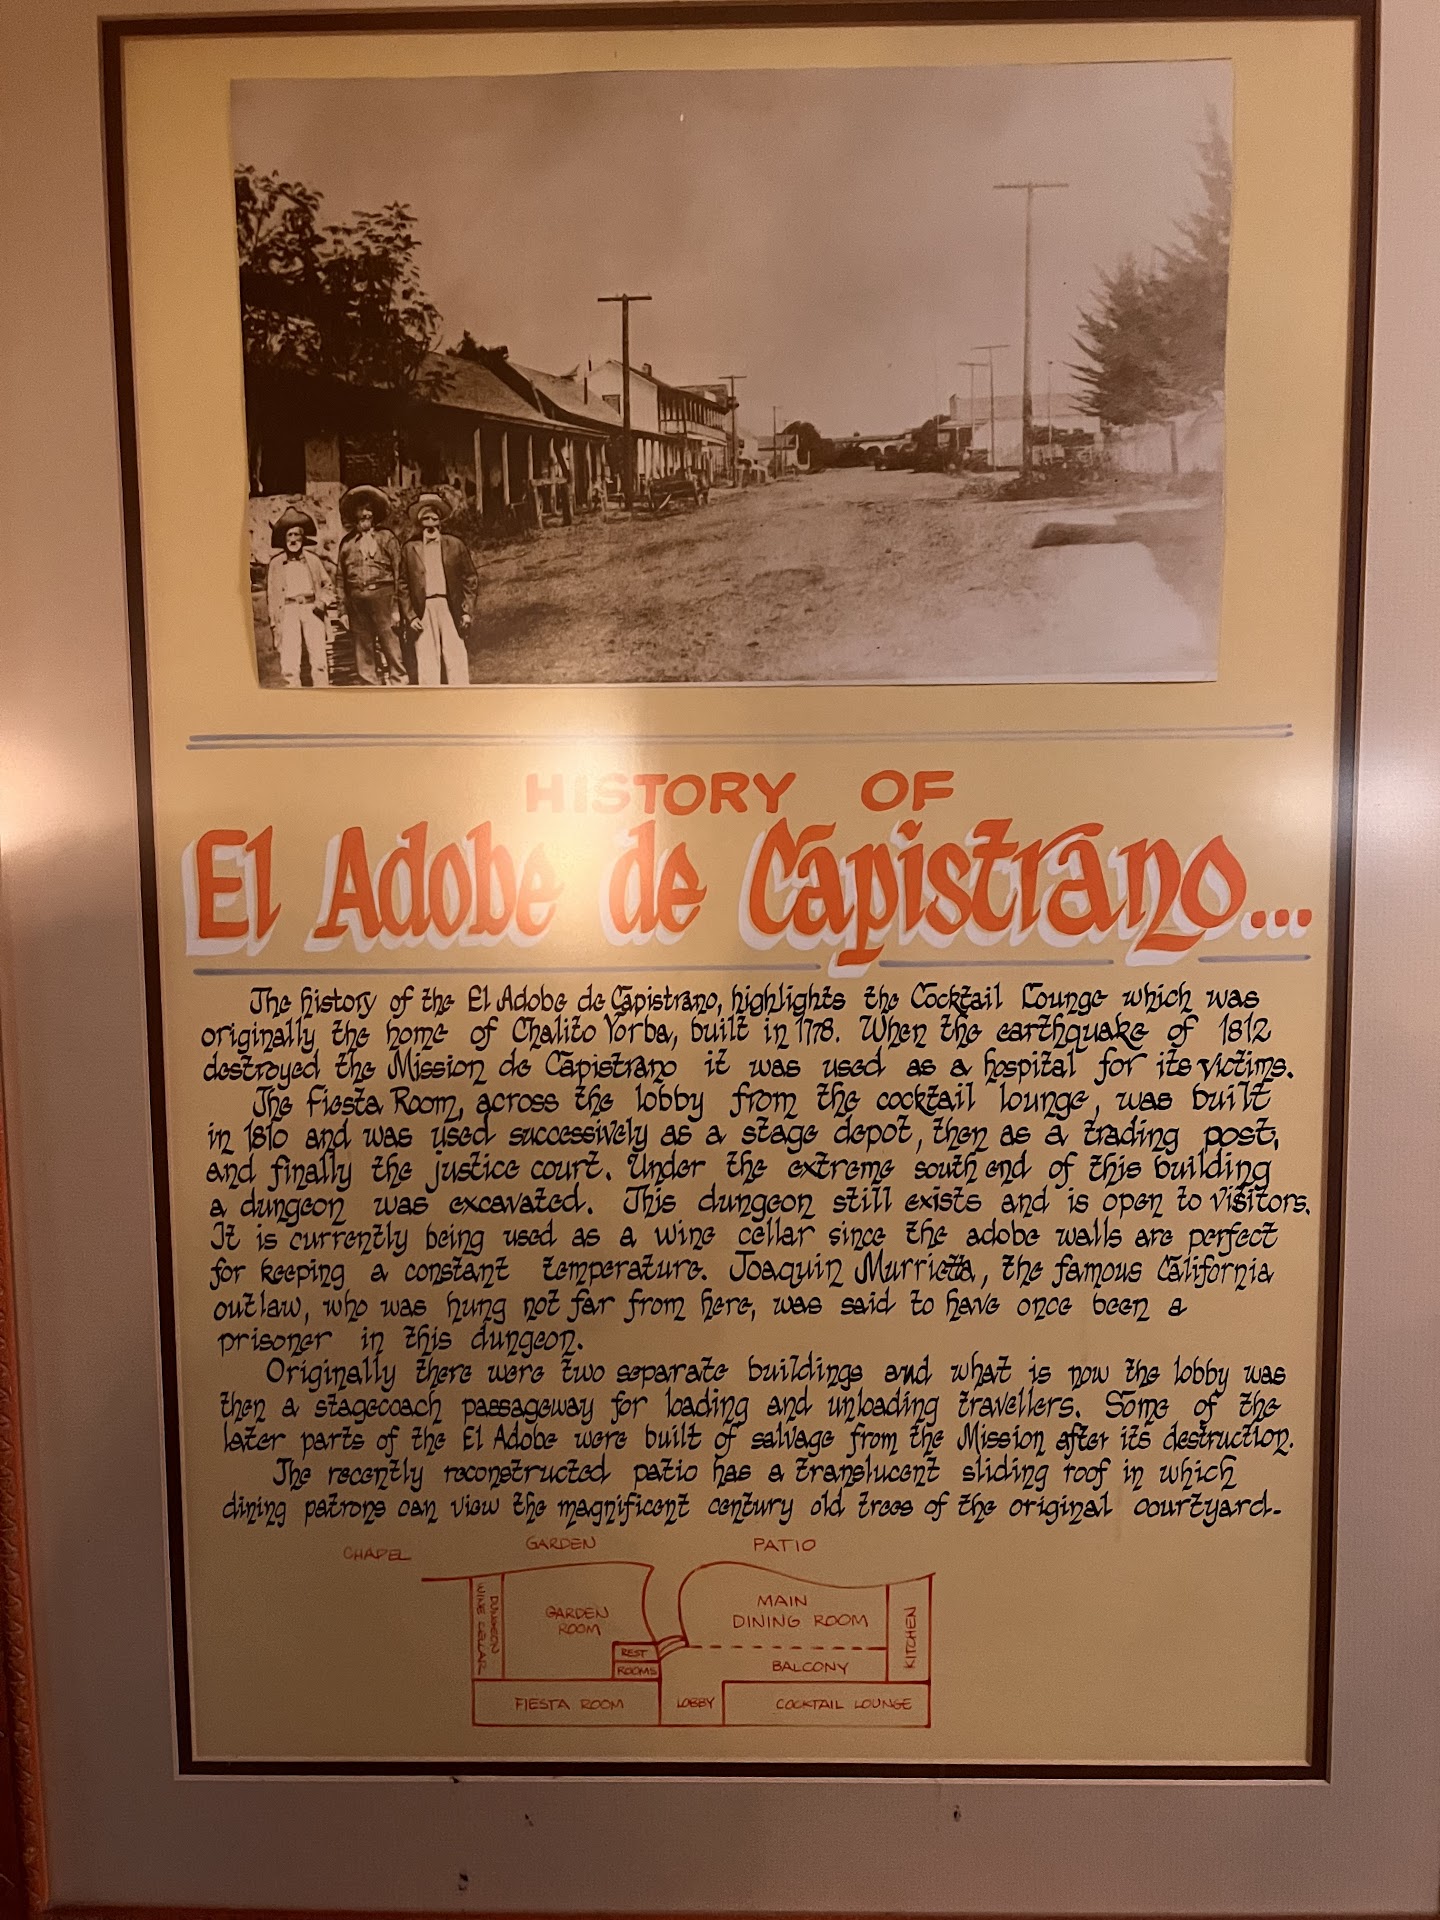 HISTORY OF
El Adobe de Capistrano...
The history of the El Adobe de Capistrano, highlights the Cocktail Lounge which was
originally the home of Chalito Yorba, built in 1778. When the earthquake of 1812
destroyed the Mission de Capistrano it was used as a hospital for its victims.
The Fiesta Room, across the lobby from the cocktail lounge, was built
in 1810 and was used successively as a stage depot, then as a trading post,
and finally the justice court. Under the extreme south end of this building
a dungeon was excavated. This dungeon still exists and is open to visitors.
It is currently being used as a wine cellar since the adobe walls are perfect
for keeping a constant temperature. Joaquin Murrietta, the famous California
outlaw, who was hung not far from here, was said to have once been a
prisoner in this dungeon.
Originally there were two separate buildings and what is now the lobby was
then a stagecoach passageway for loading and unloading travellers. Some of the
later parts of the El Adobe were built of salvage from the Mission after its destruction.
The recently reconstructed patio has a translucent sliding roof in which
dining patrons can view the magnificent century old trees of the original courtyard-
CHAPEL GARDEN PATIO
DUNGEON
WINE CELLAR
GARDEN
ROOM
MAIN
DINING ROOM
KITCHEN
REST
ROOMS
BALCONY
FIESTA ROOM LOBBY COCKTAIL LOUNGE